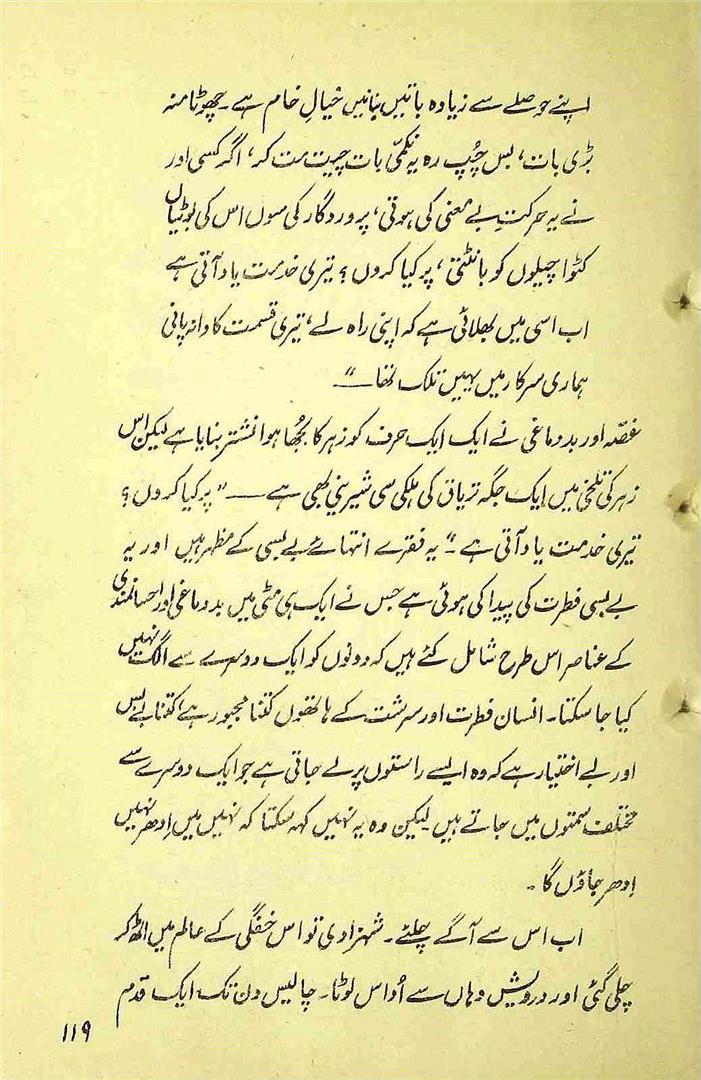 اپنے حوصلے سے زیادہ باتیں بنانیں خیالِ خام ہے۔ چھوٹا منہ
بڑی بات، بس چُپ رہ یہ نکمّی بات چیت مت کر، اگر کسی اور
نے یہ حرکتِ بے معنی کی ہوتی، پروردگار کی سوں اس کی بوٹیاں
کٹوا چیلوں کو بانٹتی، پر کیا کروں؟ تیری خدمت یاد آتی ہے
اب اسی میں بھلائی ہے کہ اپنی راہ لے، تیری قسمت کا دانہ پانی
ہماری سرکار میں یہیں تلک تھا۔"
غصّہ اور بددماغی نے ایک ایک حرف کو زہر کا بُجھا ہوا نشتر بنایا ہے لیکن اس
زہر کی تلخی میں ایک جگہ تریاق کی ہلکی سی شیرینی بھی ہے — "پر کیا کروں؟
تیری خدمت یاد آتی ہے۔" یہ فقرے انتہائے بے بسی کے مظہر ہیں اور یہ
بے بسی فطرت کی پیدا کی ہوئی ہے جس نے ایک ہی مٹی میں بددماغی اور احسانمندی
کے عناصر اس طرح شامل کئے ہیں کہ دونوں کو ایک دوسرے سے الگ نہیں
کیا جا سکتا۔ انسان فطرت اور سرشت کے ہاتھوں کتنا مجبور ہے، کتنا بے بس
اور بے اختیار ہے کہ وہ ایسے راستوں پر لے جاتی ہے جو ایک دوسرے سے
مختلف سمتوں میں جاتے ہیں لیکن وہ یہ نہیں کہہ سکتا کہ نہیں میں اِدھر نہیں
اِدھر جاؤں گا۔
اب اس سے آگے چلئے۔ شہزادی تو اس خفگی کے عالم میں اٹھ کر
چلی گئی اور درویش وہاں سے اُداس لوٹا۔ چالیس دن تک ایک قدم
۱۱۹